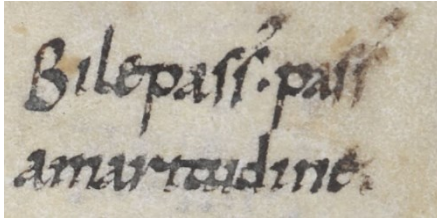 Bilepass᷒. pass᷒
amaritudine.